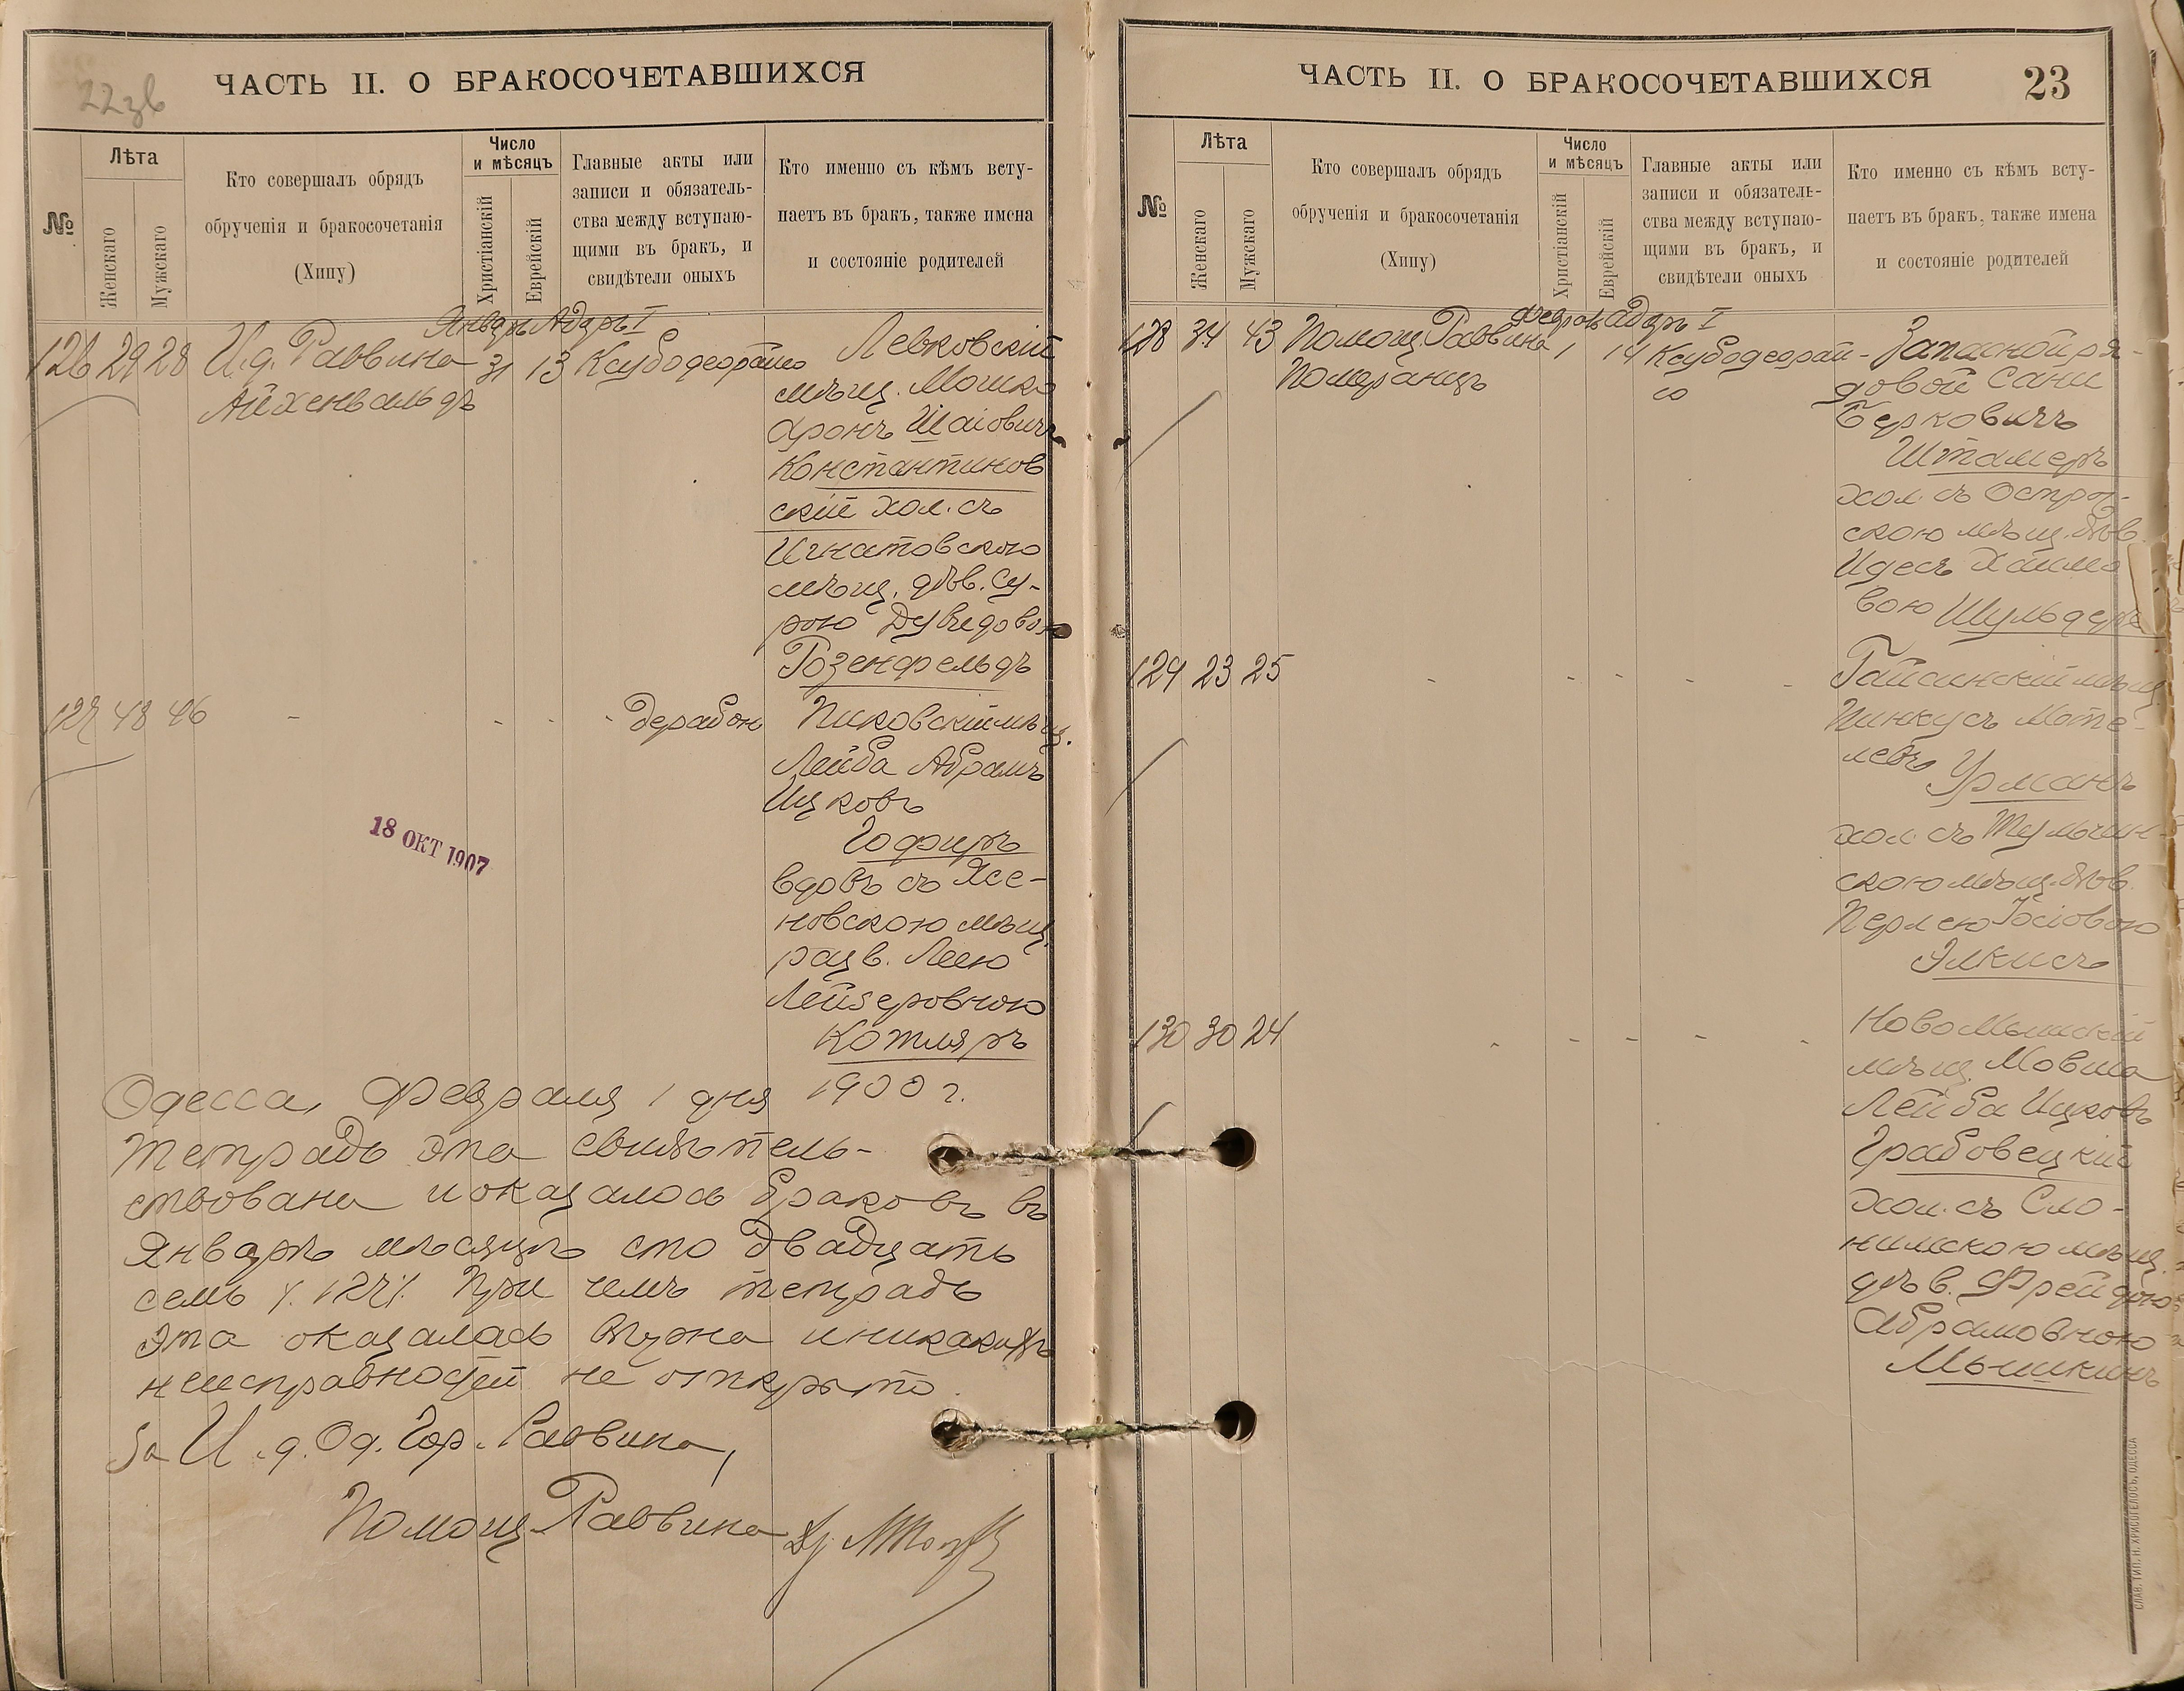 22зв
ЧАСТЬ II. О БРАКОСОЧЕТАВШИХСЯ
№
Лѣта
Женскаго
Мужскаго
Кто совершалъ обрядъ
обрученія и бракосочетанія
(Хипу)
Число
и мѣсяцъ
Христіанскій
Еврейскій
Главные акты или
записи и обязатель-
ства между вступаю-
щими въ бракъ, и
свидѣтели оныхъ
Кто именно съ кѣмъ всту-
паетъ въ бракъ, также имена
и состояніе родителей
Январь Адаръ I
126 29 28 И.д. Раввина 31 13 Ксубодеорайсо
Айхенвальдъ
Левковскій
мѣщ. Мошко
Аронъ Шаіовичъ
Константинов
скій хол. съ
Игнатовскою
мѣщ. дѣв. Су-
рою Дувидовою
Розенфельдъ
127 48 46 - - - - дерабон
Пиковскій мѣщ.
Лейба Абрамъ
Ицковъ
Гофиръ
вдовъ съ Ясе-
новскою мѣщ.
разв. Леею
Лейзеровною
Котляръ
18 ОКТ 1907
Одесса, Февраля 1 дня 1900 г.
Тетрадь эта свидѣтель-
ствована и оказалось браковъ въ
Январѣ мѣсяцѣ сто двадцать
семь /127/. При чемъ тетрадь
эта оказалась вѣрна и никакихъ
неисправностей не открыто.
За И.д. Од. Гор. Раввина,
Помощ. Раввина
ЧАСТЬ II. О БРАКОСОЧЕТАВШИХСЯ
23
№
Лѣта
Женскаго
Мужскаго
Кто совершалъ обрядъ
обрученія и бракосочетанія
(Хипу)
Число
и мѣсяцъ
Христіанскій
Еврейскій
Главные акты или
записи и обязатель-
ства между вступаю-
щими въ бракъ, и
свидѣтели оныхъ
Кто именно съ кѣмъ всту-
паетъ въ бракъ, также имена
и состояніе родителей
Февраль Адаръ I
128 34 43 Помощ. Раввина 1 14 Ксубодеорай-
Померанцъ со
Запасной ря-
довой Сани
Берковичъ
Штамеръ
хол. съ Острог-
скою мѣщ. дѣв.
Идесъ Хаимо
вою Шульдеръ
129 23 25 - - - - -
Гайсинскій мѣщ.
Пинкусъ Моте-
левъ
Урманъ
хол. съ Тульчин-
скою мѣщ. дѣв.
Перлею Іосіовою
Элкисъ
130 30 24 - - - - -
НовоМышскій
мѣщ. Мовша
Лейба Ицковъ
Грабовецкій
хол. съ Сло-
нимскою мѣщ.
дѣв. Фрейдою
Абрамовною
Мышкинъ
СЛАВ. ТИП. Н. ХРИСОГЕЛОСЪ, ОДЕССА